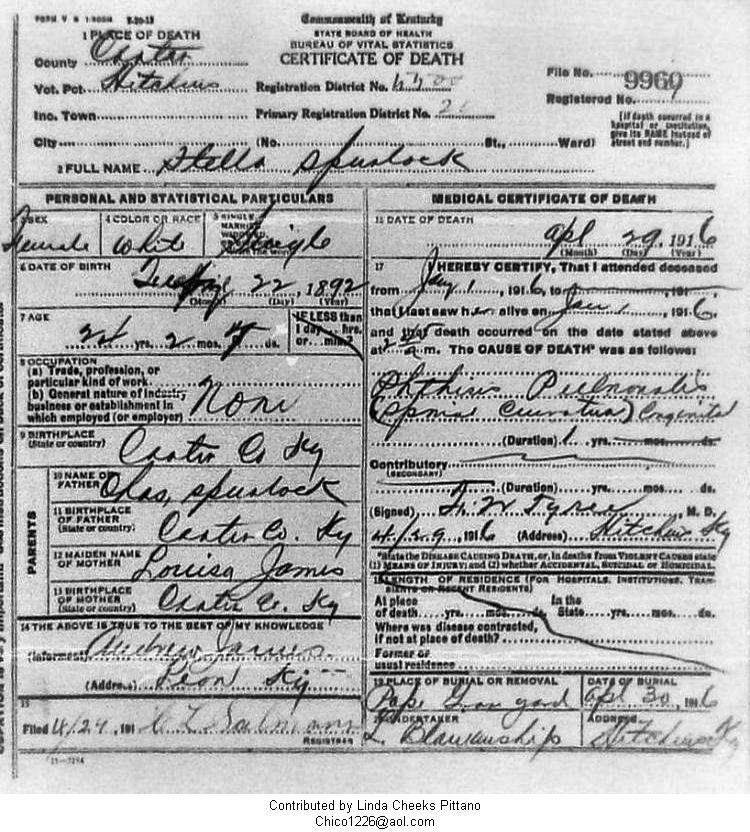 FORM V S 1-
Commonwealth of Kentucky
STATE BOARD OF HEALTH
BUREAU OF VITAL STATISTICS
CERTIFICATE OF DEATH
1 PLACE OF DEATH
County Carter
Vot. Pct. Hitchins
Inc. Town
City
Registration District No.
Primary Registration District No.
(No. St., Ward)
File No. 9960
Registered No.
[If death occurred in a
hospital or institution,
give its NAME instead of
street and number.]
2 FULL NAME Stella Spurlock
PERSONAL AND STATISTICAL PARTICULARS
3 SEX
Female
4 COLOR OR RACE
White
5 SINGLE
MARRIED
Single
6 DATE OF BIRTH
22, 1892
(Month) (Day) (Year)
7 AGE
24 yrs. 2 mos. 7 ds.
IF LESS than
1 day hrs.
or min?
8 OCCUPATION
(a) Trade, profession, or
particular kind of work
(b) General nature of industry
business or establishment in
which employed (or employer)
None
9 BIRTHPLACE
(State or country)
Carter Co Ky
PARENTS
10 NAME OF
FATHER
Chas, Spurlock
11 BIRTHPLACE
OF FATHER
(State or country)
Carter Co. Ky
12 MAIDEN NAME
OF MOTHER
Louisa James
13 BIRTHPLACE
OF MOTHER
(State or country)
Carter Co. Ky
14 THE ABOVE IS TRUE TO THE BEST OF MY KNOWLEDGE
(Informant) Andrew James
(Address) Leon Ky
15
Filed 4/29, 191
REGISTRAR
MEDICAL CERTIFICATE OF DEATH
16 DATE OF DEATH
Apl 29, 1916
(Month) (Day) (Year)
17 I HEREBY CERTIFY, That I attended deceased
from Jany 1, 1916, to , 191
that I last saw her alive on Jan 1, 1916,
and that death occurred on the date stated above
at m. The CAUSE OF DEATH* was as follows:
Phthisis Pulmonalis
Congenital
(Duration) 1 yrs. mos. ds.
Contributory
(SECONDARY)
(Duration) yrs. mos. ds.
(Signed) M. D.
4/29, 1916 (Address) Hitchins Ky
*State the DISEASE CAUSING DEATH, or, in deaths from VIOLENT CAUSES state
(1) MEANS OF INJURY; and (2) whether ACCIDENTAL, SUICIDAL or HOMICIDAL.
18 LENGTH OF RESIDENCE (FOR HOSPITALS, INSTITUTIONS, TRAN-
SIENTS OR RECENT RESIDENTS)
At place
of death yrs. mos. ds.
In the
State yrs. mos. ds.
Where was disease contracted,
if not at place of death?
Former or
usual residence
19 PLACE OF BURIAL OR REMOVAL
Pope Grave yard
DATE OF BURIAL
Apl 30, 1916
20 UNDERTAKER
ADDRESS
Hitchins Ky
Contributed by Linda Cheeks Pittano
Chico1226@aol.com